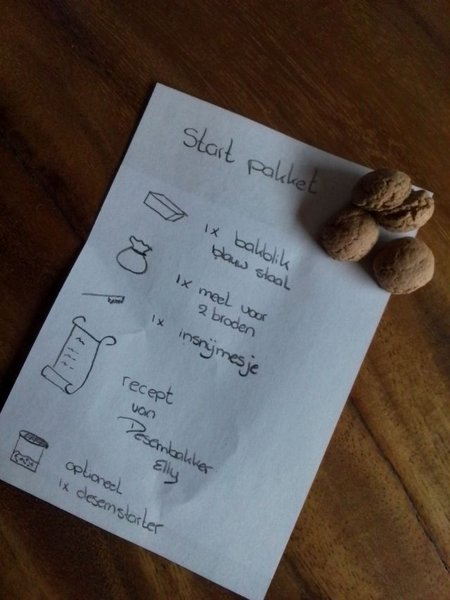 Start pakket
1x bakblik
blauw staal
1x meel voor
2 broden
1x insnijmesje
recept
van
Desembakker
Elly
optioneel
1x desemstarter